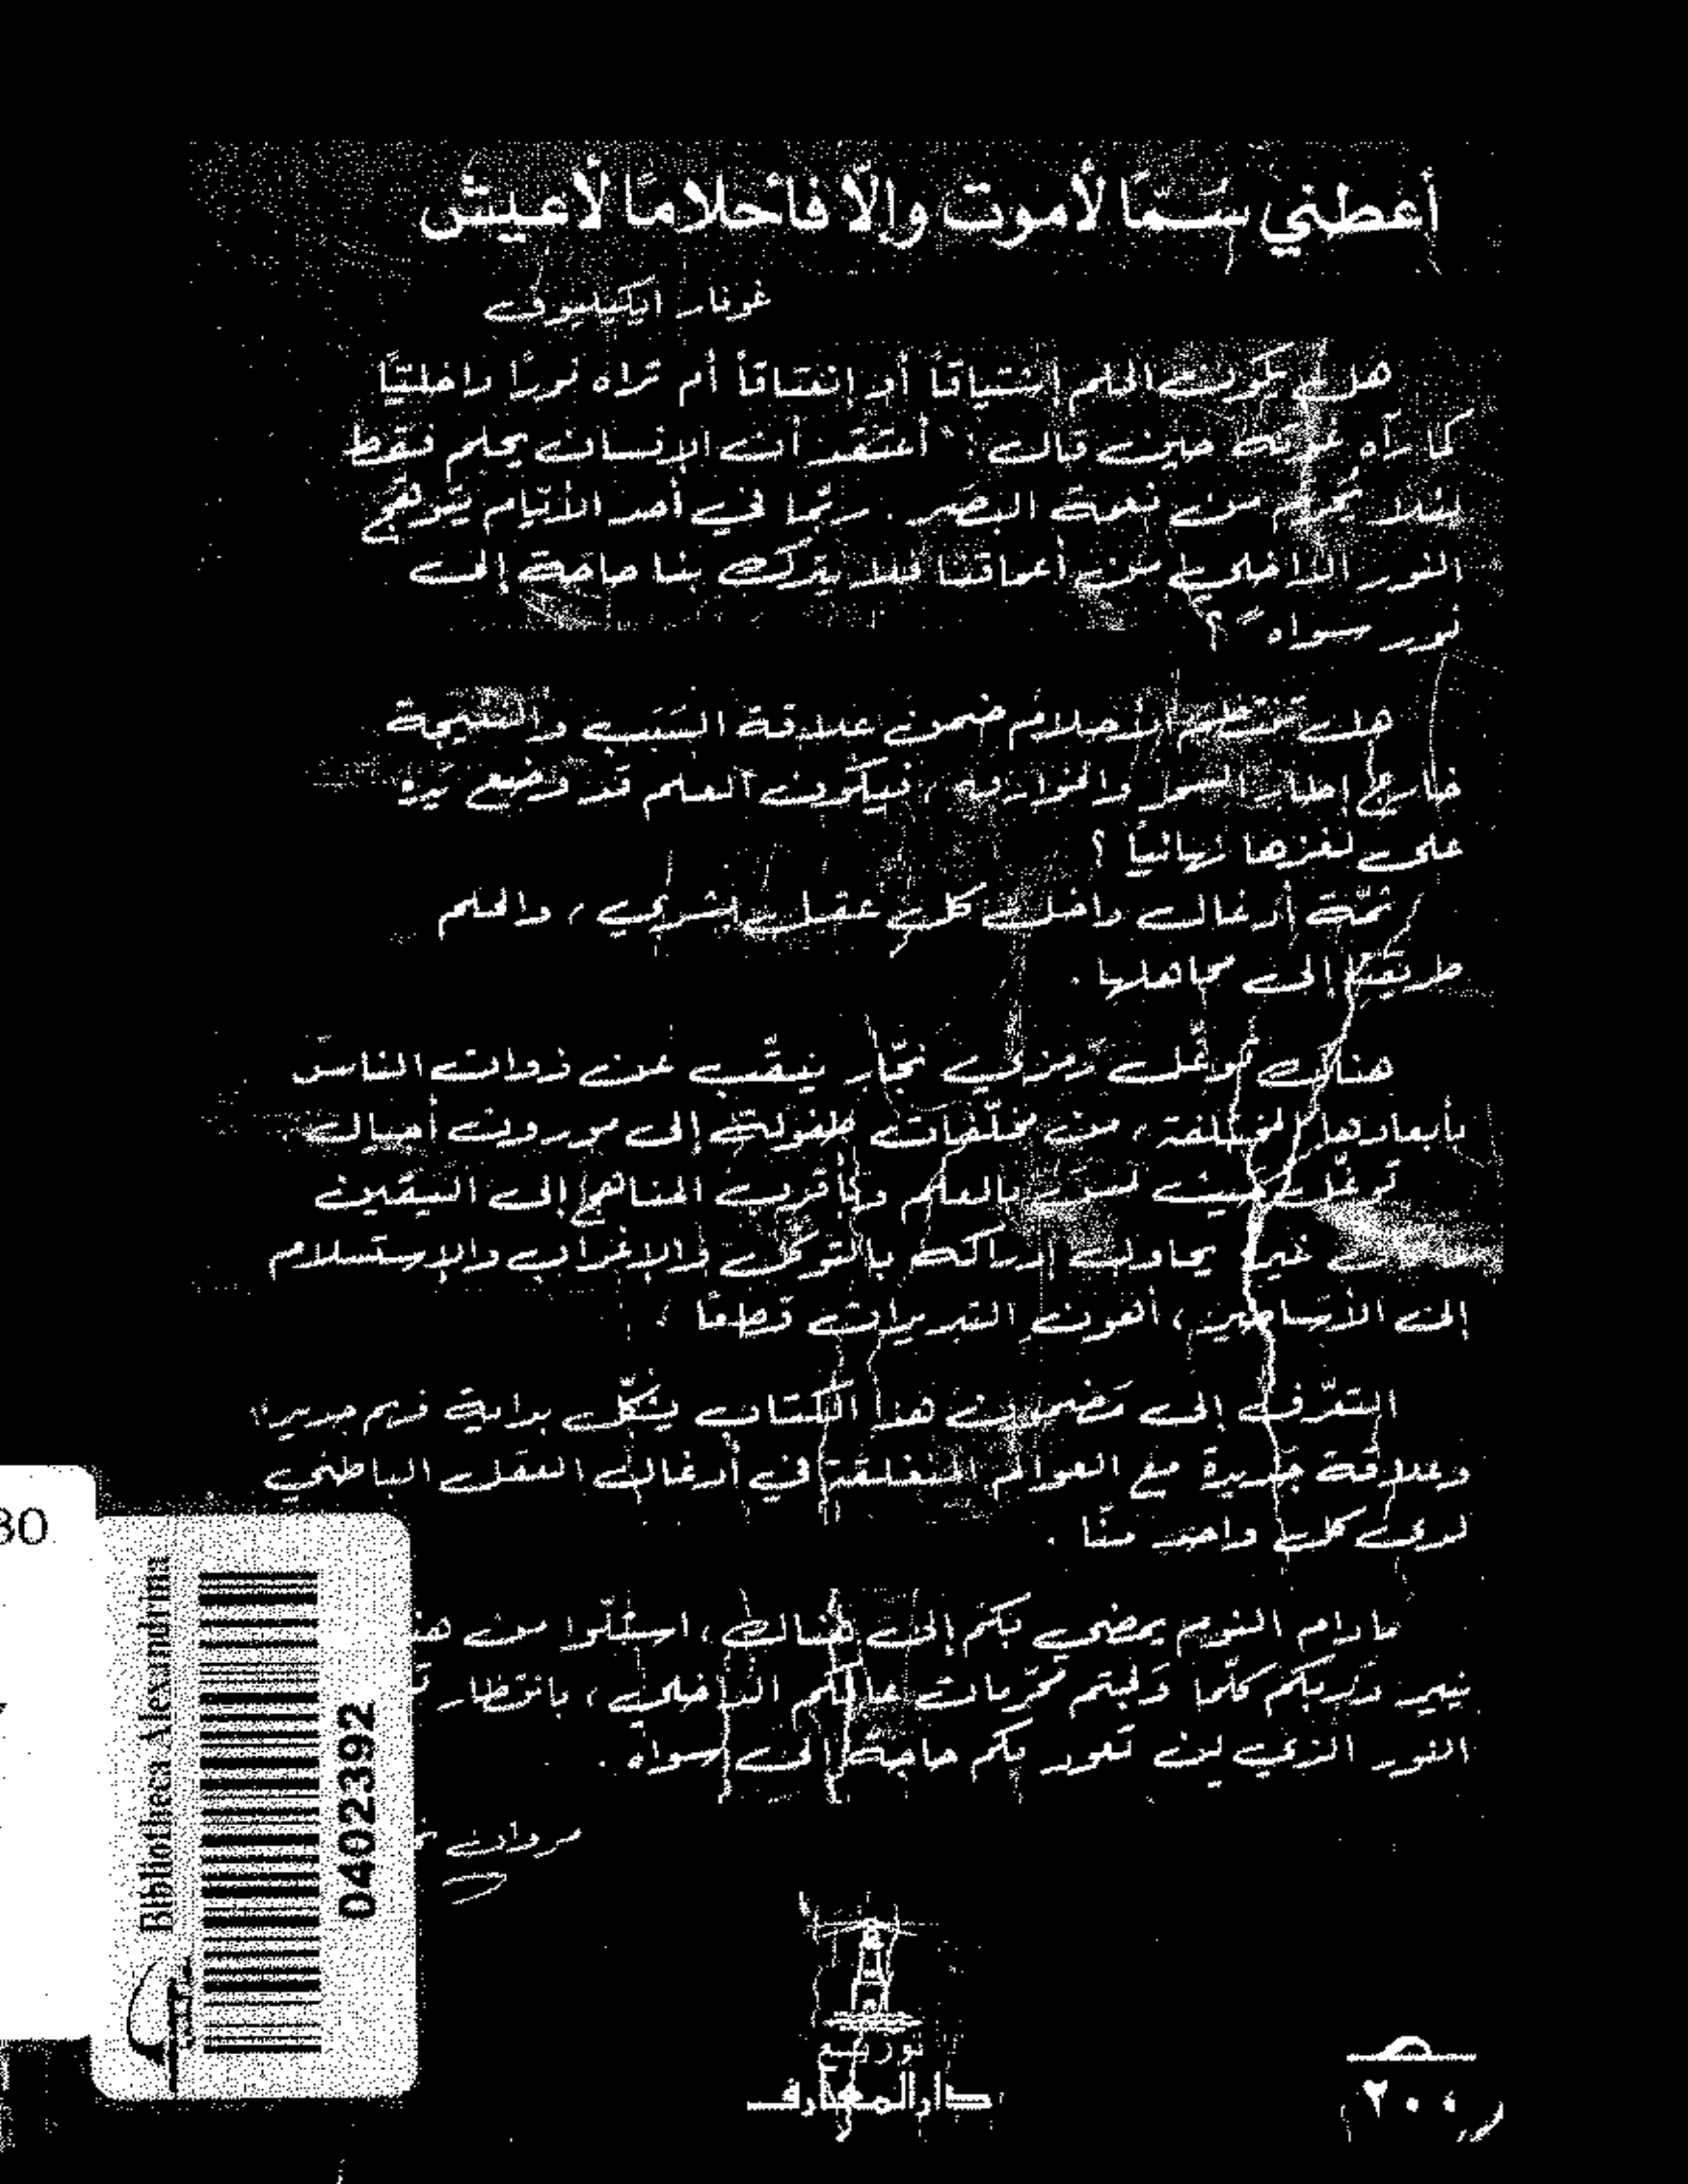 أعطني سمًّا لأموت وإلّا فأحلامًا لأعيش
غونار ايكيليوف
هل يكون الحلم اشتياقاً أو انعتاقاً أم تراه نوراً داخليّاً
كما رآه غوته حين قال: "أعتقد أن الإنسان يحلم فقط
لئلا يُحرم من نعمة البصر. ربّما في أحد الأيّام يتوهّج
النور الداخلي من أعماقنا فلا يترك بنا حاجة إلى
نور سواه"؟
هل تنتظم الأحلام ضمن علاقة السَبَب والنتيجة
خارج إطار السحر والخوارق، فيكون العلم قد وضع يده
على لغزها نهائياً؟
ثمّة أدغال داخل كل عقل بشري، والحلم
طريقنا إلى مجاهلها.
هناك توغّل رمزي ينقّب عن ذوات الناس
بأبعادها المختلفة، من مخلّفات طفولة إلى موروث أجيال
توغّل حيث بالعلم المناهج إلى اليقين
غيره يحاول إدراكه بالتوكّل والاستسلام
إلى الأساطير، أهون التبريرات قطعاً.
التعرّف إلى مضمون هذا الكتاب يشكّل بداية فهم جديد،
وعلاقة جديدة مع العوالم المغلقة في أدغال العقل الباطني
لدى كل واحد منّا.
ما دام النوم يمضي بكم إلى هناك، استلّوا من
ينير دربكم كلّما ولجتم الداخلي، بانتظار
النور الذي لن تعود بكم حاجة إلى سواه.
مروان
توزيع
دار المعارف
30
Bibliotheca Alexandrina
0402392